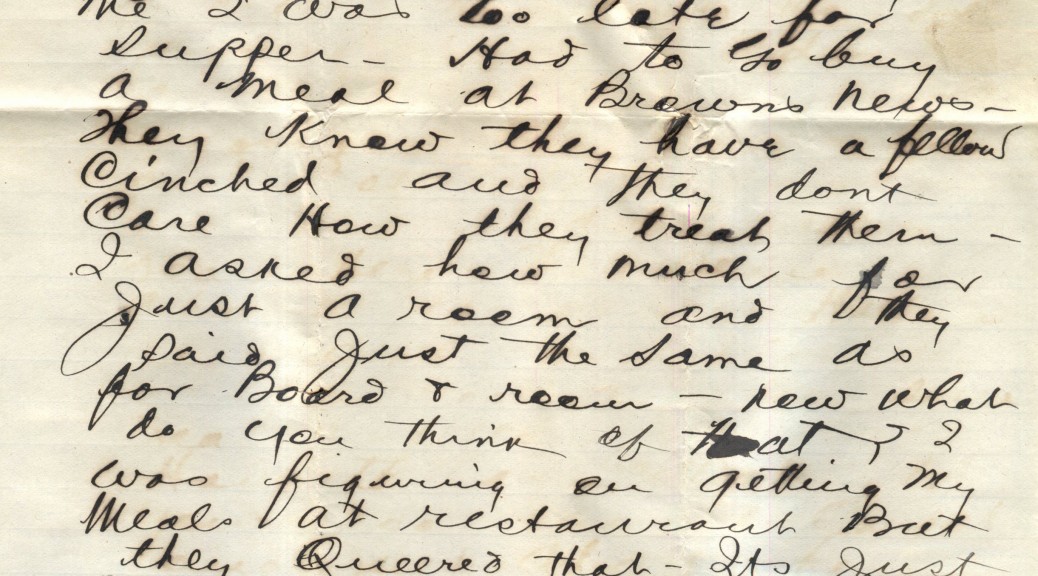 me I was too late for
supper - Had to go buy
a meal at Browns news -
They Know they have a fellow
Cinched and they dont
Care How they treat them -
I asked how much for
Just a room and they
said Just the same as
for Board & room - now what
do you think of that ? I
was figuring on getting My
Meals at restaurant But
they Queered that - Its Just